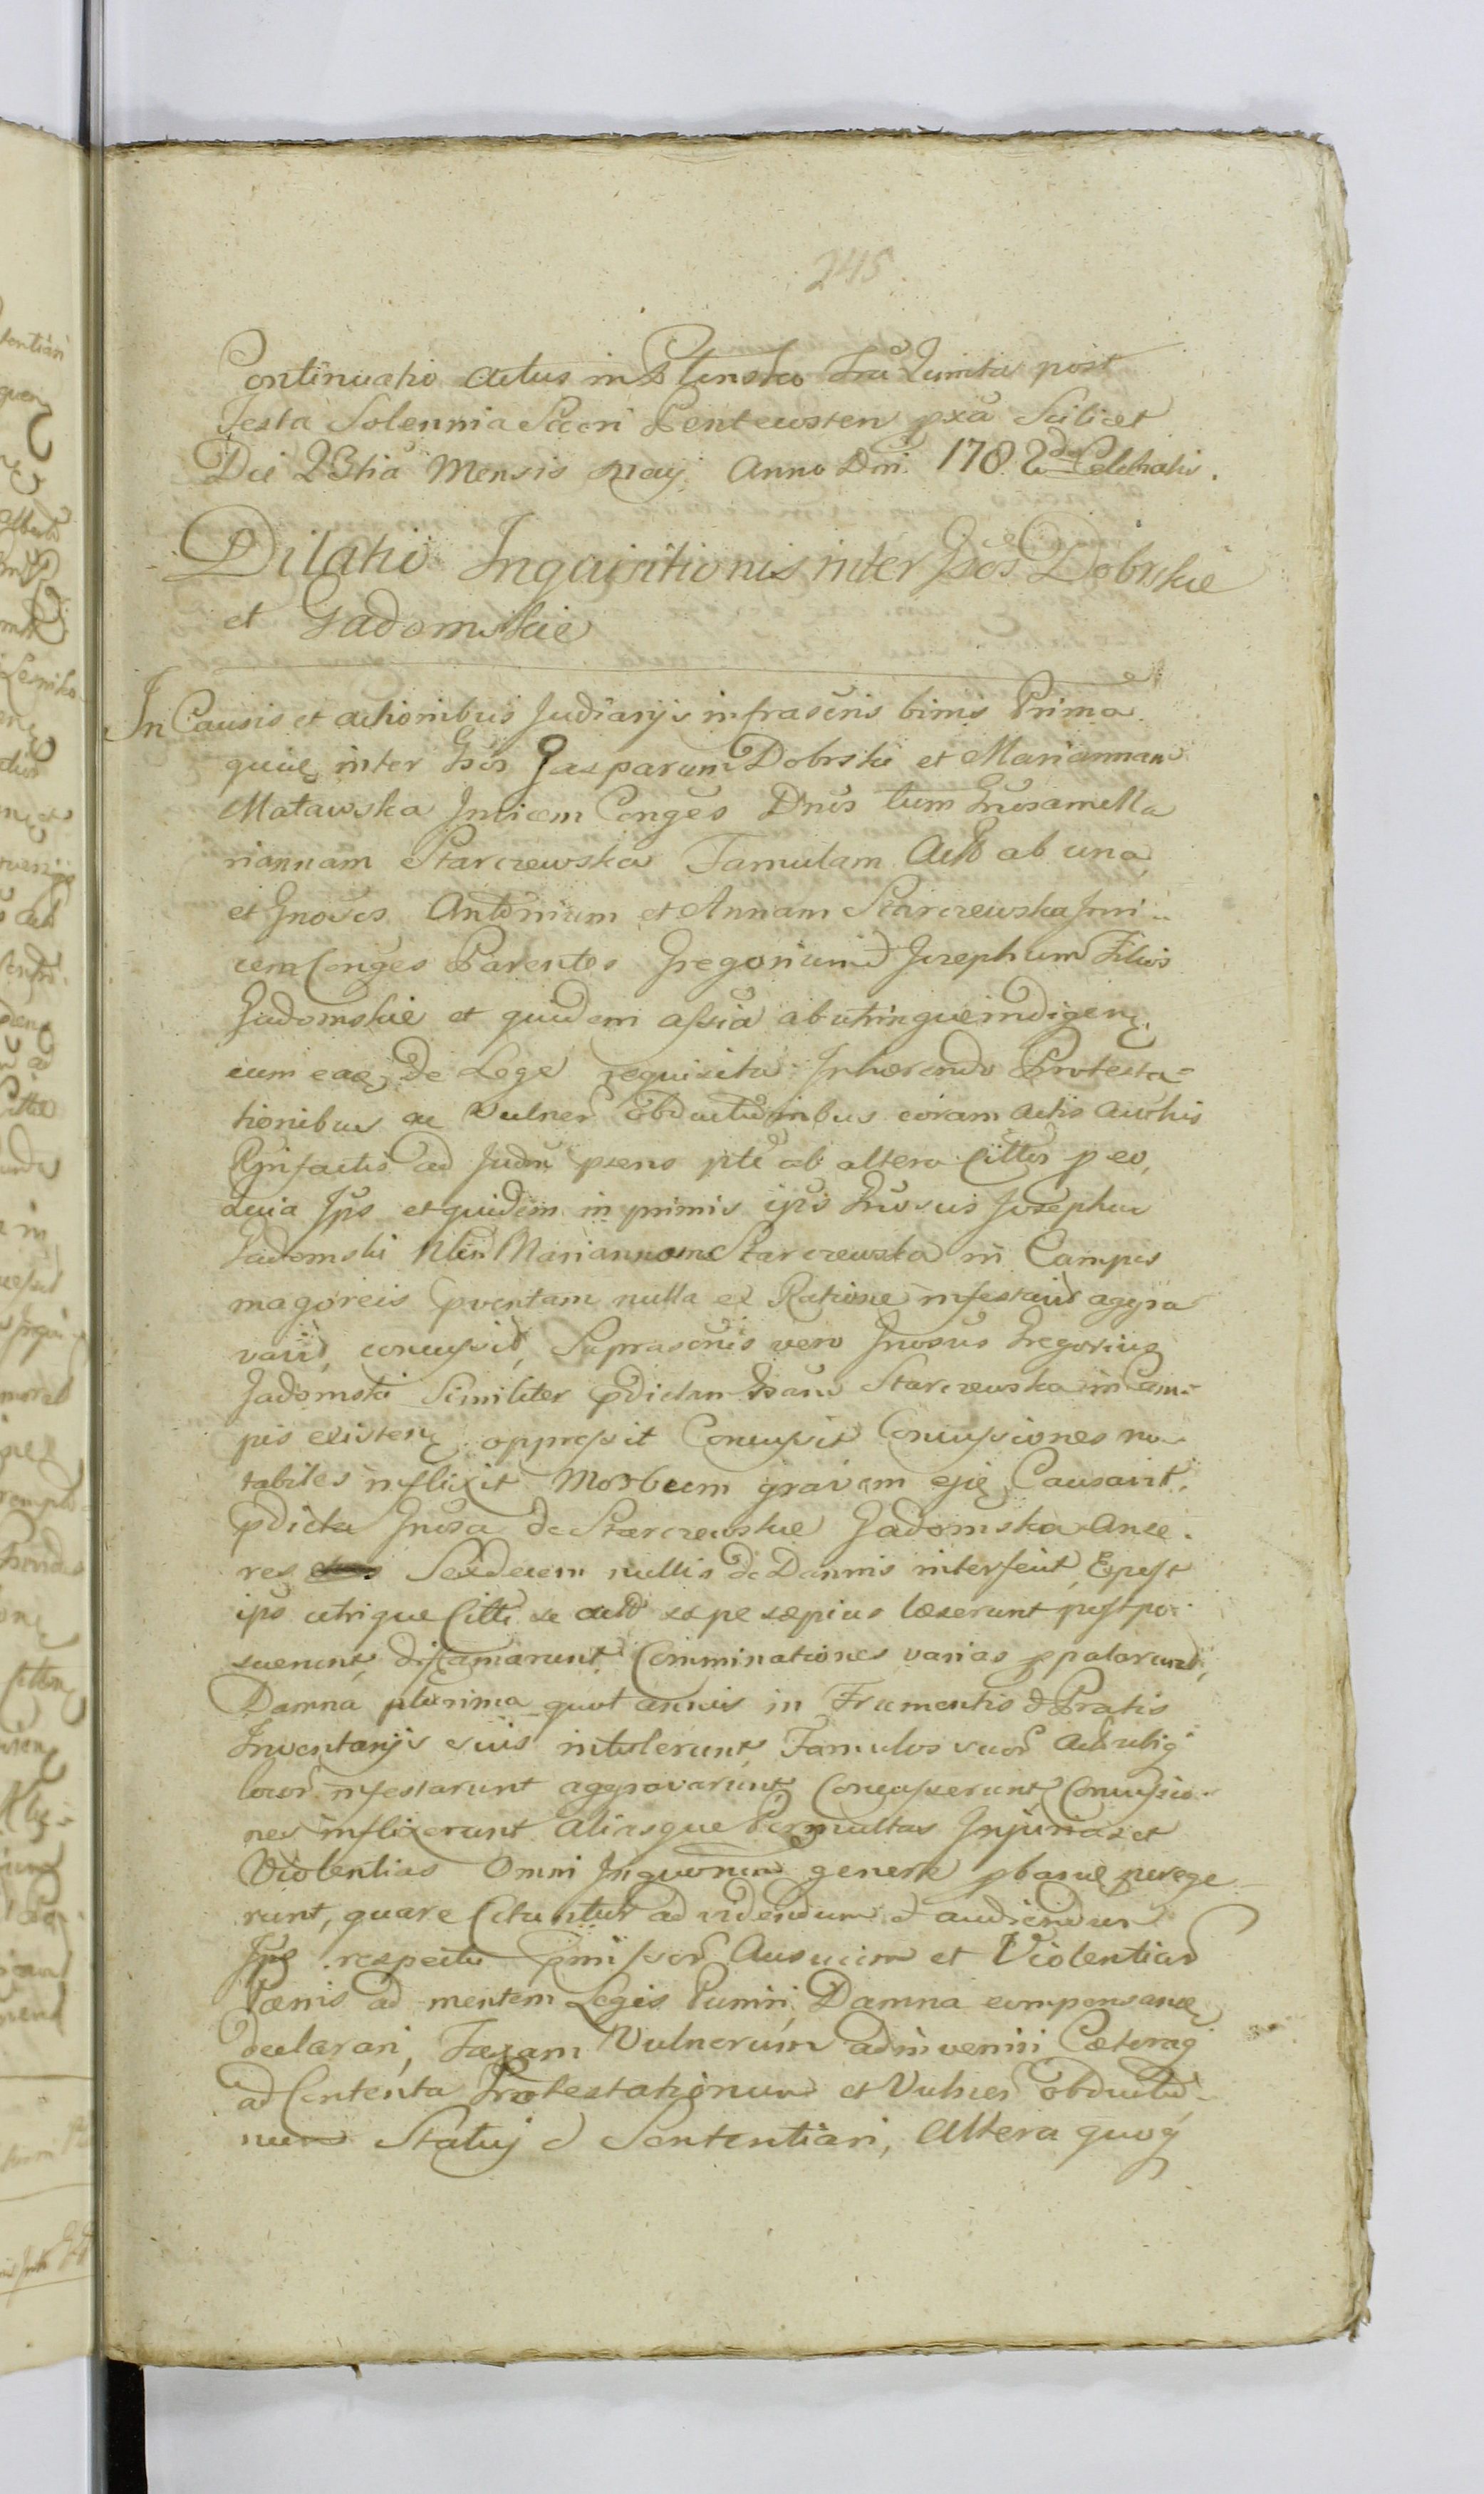 245
Continuatio Actus in Plensko Fra Quinta post
Festa Solennia Sacri Pentecosten pxa Scilicet
Die 23tia Mensis May Anno Dni 1782do Celebratis.
Dilatio Inquisitionis inter Gsos Dobrskie
et Gadomskie
In Causis et actionibus Judiarijs infrascris binis Prima
quie inter Gsos Gasparum Dobrski et Mariannam
Matawska Invicem Conges Dnos tum Gnosam Ma
riannam Starczewska Famulam Act ab una
et Gnosos Antonium et Annam Starczewska Invi
cem Conges Parentes Gregorium & Josephum Filios
Gadomskie et quidem assia ab utrinque indigen
cum eae de Lege requisita Inhaerendo Protesta=
tionibus ac Vulner Obductionibus coram Actis Authis
factis ad Judm psens pte ab altera Cittos p eo,
quia Ips et quidem in primis ips Gnosus Josephus
Gadomski Nlem Mariannam Starczewska in Campis
magoreis pventam nulla ex Ratione infestavit aggra
vavit, concussit, Suprascris vero Gnosus Gregorius
Gadomski Similiter pdictam Gsam Starczewska in Cam=
pis existen oppressit Concussit Concussiones no
tabiles inflixit Morbum gravem ejie Causavit,
pdicta Gnosa de Starczewskie Gadomska Anse
res Sexdecem nullis de Damnis interfecit, Epost
ips utrique Citti se act sepe saepius laeserunt postpo
suerunt, diffamarunt, Comminationes varias ppalarunt,
Damna plurima quot annis in Frumentis & Pratis
Inventarijs suis intulerunt, Famulos suos Act ubiq
locor infestarunt aggravarunt, Concusserunt, Concussio
nes inflixerunt aliasque Permultas Injurias et
Violentias Omni genere pbane perege
runt, quare Citantur ad videndum & audiendum
Ips respectu pmissor Ausuum et Violentiar
Paenis ad mentem Legis Puniri, Damna compensare
declarari, Taxam Vulnerum adinveniri Caeteraq
ad Contenta Protestationum et Vulner obductio
num Statuj & Sententiari, Altera quoq